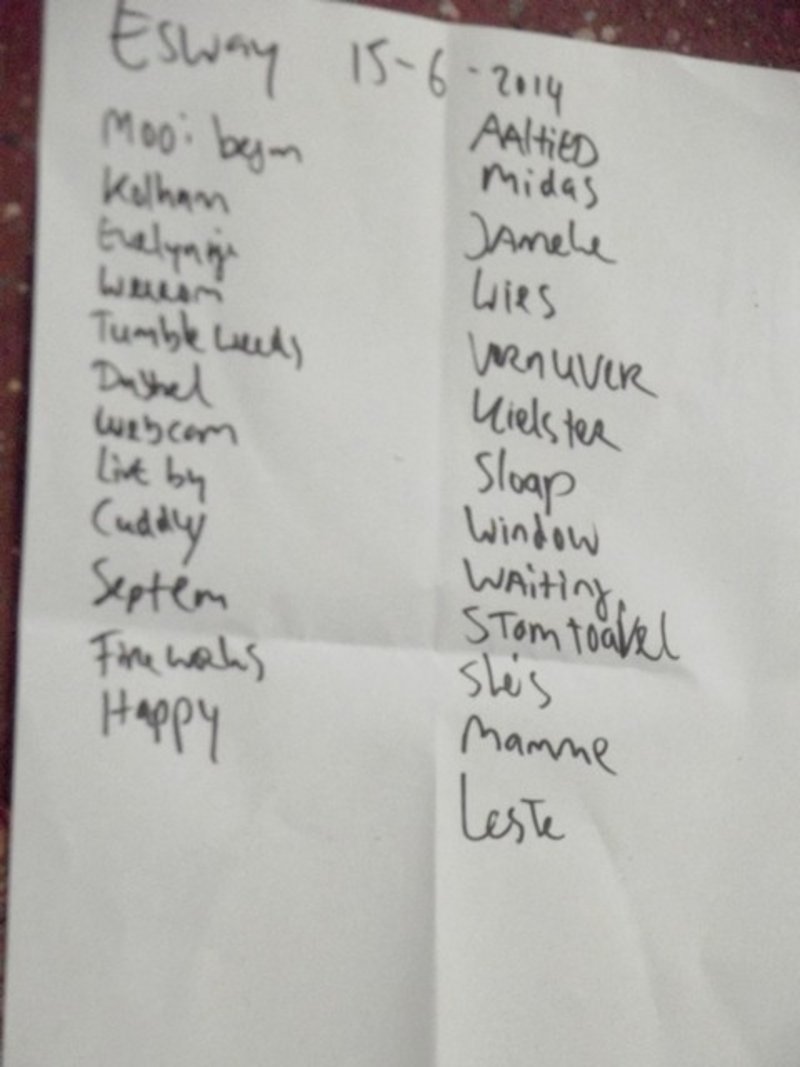 Esway 15-6-2014
Mooi begin
Kolham
Evelyn
Tumble weeds
Dashel
Webcam
Live by
Cuddly
Septem
Fireworks
Happy
AAltiED
Midas
JAneke
Wies
Kielster
Sloap
Window
WAiting
STom toavel
Mamme
Leste